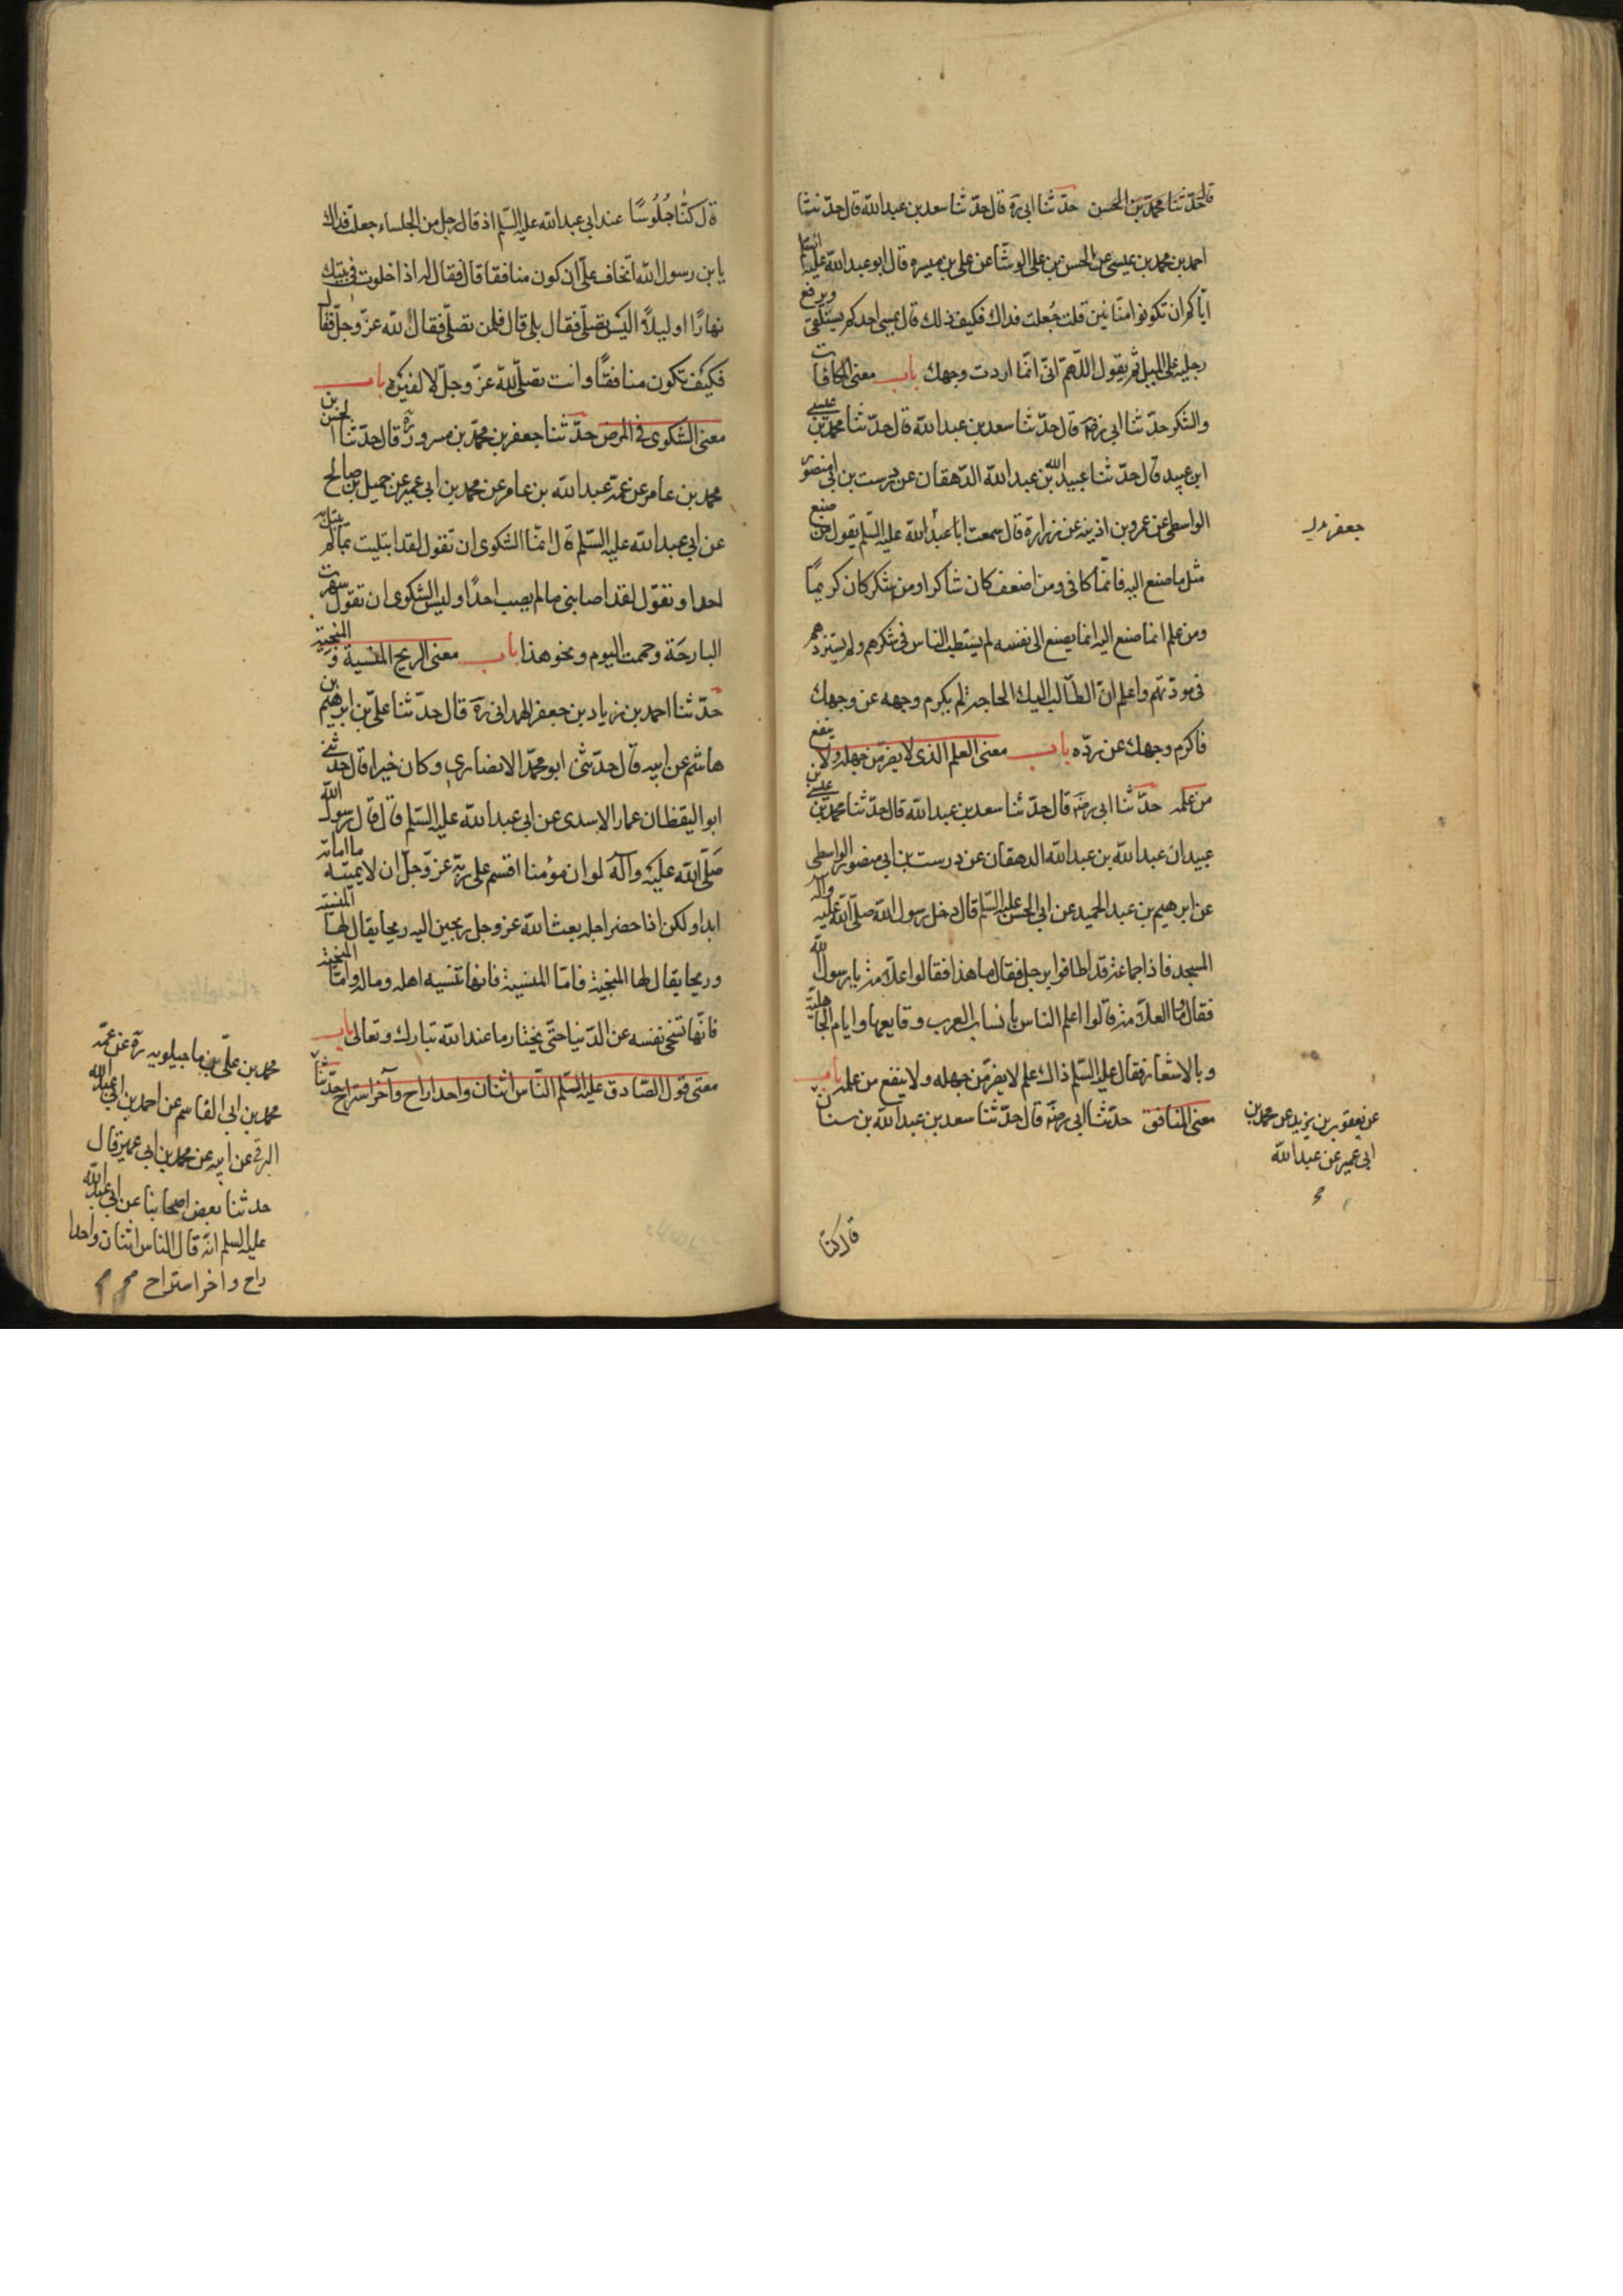 قال حدثنا محمد بن الحسن حدّثنا ابي ره قال حدّثنا سعد بن عبد الله قال حدّثنا
احمد بن محمد بن عيسى عن الحسن بن علي الوشّا عن علي بن ميسره قال ابو عبد الله عليه السلم
ايّاكم ان تكونوا منّانين قلت جُعلت فداك فكيف ذلك قال يمسى احدكم يستلقى ويرفع
رجليه على الميل ثم يقول اللّهمّ انّى انّما اردت وجهك باب معنى المكافات
والشكر حدّثنا ابي رضه قال حدّثنا سعد بن عبد الله قال حدّثنا محمد بن عيسى
ابن عبيد قال حدّثنا عبيد الله بن عبد الله الدّهقان عن درست بن ابي منصور
الواسطى عن عمرو بن اذينه عن زرارة قال سمعت ابا عبد الله عليه السّلم يقول من صنع
مثل ما صنع اليه فانّما كافى ومن اضعف كان شاكرا ومن شكر كان كريمًا
ومن علم انما صنع اليه انما يصنع الى نفسه لم يستبط الناس فى شكرهم ولم يستزدهم
فى مودّتهم واعلم انّ الطّالب اليك الحاجة لم يكرم وجهه عن وجهك
فاكرم وجهك عن ردّه باب معنى العلم الذى لا يضر من جهله ولا ينفع
من علمه حدّثنا ابي رضه قال حدّثنا سعد بن عبد الله قال حدّثنا محمد بن عيسى بن
عبيد ان عبد الله بن عبد الله الدهقان عن درست بن ابي منصور الواسطى
عن ابرهيم بن عبد الحميد عن ابي الحسن عليه السّلم قال دخل رسول الله صلّى الله عليه واله
المسجد فاذا جماعة قد اطافوا برجل فقال ما هذا فقالوا علّامة يا رسول الله
فقال وما العلّامة قالوا اعلم الناس بأنساب العرب ووقايعها وايام الجاهلية
وبالاشعار فقال عليه السّلم ذاك علم لا يضر من جهله ولا ينفع من علمه باب
معنى المنافق حدّثنا ابي رضه قال حدّثنا سعد بن عبد الله بن سنان
جعفر
عن يعقوب بن يزيد عن محمد بن
ابى عمير عن عبد الله
قال كنّا
قال كنّا جُلُوسًا عند ابي عبد الله عليه السّلم اذ قال رجل من الجلساء جعلت فداك
يا بن رسول الله اتخاف علىّ ان كون منافقا قال فقال له اذا خلوت فى بيتك
نهارًا او ليلًا اليس تصلّى فقال بلى قال فلمن تصلّى فقال لله عزّ وجلّ فقال
فكيف تكون منافقًا وانت تصلّى لله عزّ وجلّ لا لغيره باب
معنى الشكوى فى المرض حدّثنا جعفر بن محمّد بن مسرور ره قال حدّثنا الحسن بن
محمد بن عامر عن عمّه عبد الله بن عامر عن محمد بن ابي عمير عن جميل بن صالح
عن ابي عبد الله عليه السّلم قال انمّا الشكوى ان تقول لقد ابتليت بما لم يبتل به
احد او تقول لقد اصابنى ما لم يصب احدًا وليس الشكوى ان تقول سهرت
البارحة وحممت اليوم ونحو هذا باب معنى الريح المنسية والمنجية
حدّثنا احمد بن زياد بن جعفر الهمدانى ره قال حدّثنا علىّ بن ابرهيم بن
هاشم عن ابيه قال حدّثنى ابو محمّد الانصارى وكان خيرا قال حدثنى
ابو اليقظان عمار الاسدى عن ابي عبد الله عليه السّلم قال قال رسول الله
صلّى الله عليه وآله لو ان مؤمنا اقسم على ربّه عزّ وجلّ ان لا يميته ما اماته
ابدا ولكن اذا حضر اجله بعث الله عز وجل ريحين اليه ريحا يقال لها المنسية
وريحا يقال لها المنجية فامّا المنسية فانها تنسيه اهله وماله وامّا المنجية
فانّها تنجى نفسه عن الدّنيا حتّى يختار ما عند الله تبارك وتعالى باب
معنى قول الصّادق عليه السّلم النّاس اثنان واحد اراح وآخر استراح حدّثنا
محمد بن علىّ بن ماجيلويه ره عن عمّه
محمد بن ابى القاسم عن احمد بن ابي عبد الله
البرقى عن ابيه عن محمد بن ابى عمير قال
حدثنا بعض اصحابنا عن ابي عبد الله
عليه السلم انّه قال الناس اثنان واحد
راح واخر استراح